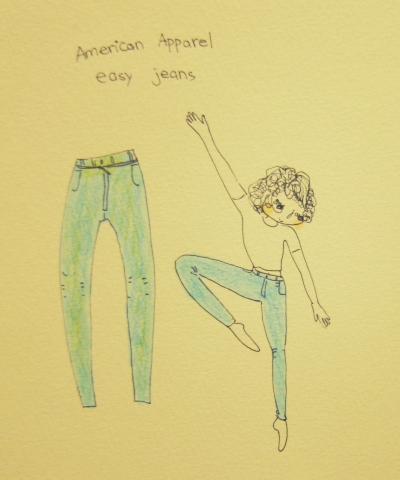 American Apparel
easy jeans